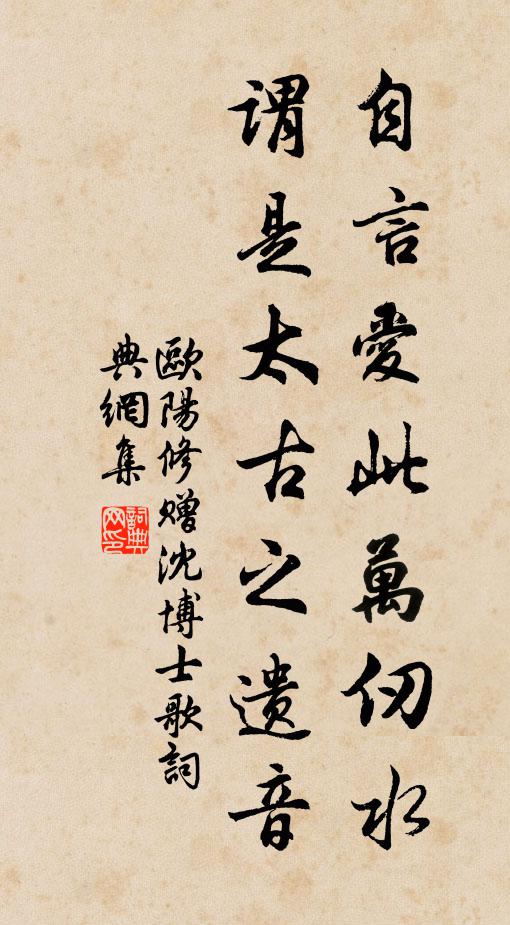 自言愛此萬仞水
謂是太古之遺音
歐陽修贈沈博士歌詞
典網集
詞典網印